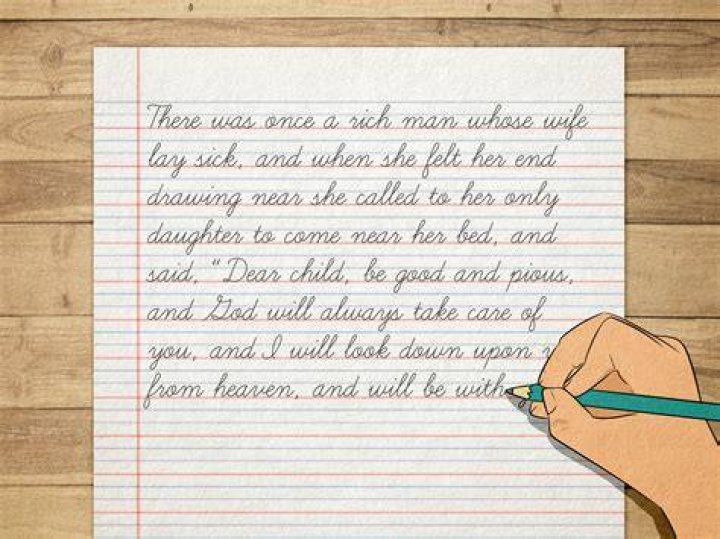 There was once a rich man whose wife
lay sick, and when she felt her end
drawing near she called to her only
daughter to come near her bed, and
said, "Dear child, be good and pious,
and God will always take care of
you, and I will look down upon
from heaven, and will be with